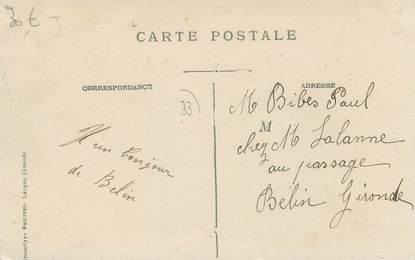 30 €
CARTE POSTALE
CORRESPONDANCE
ADRESSE
33
un bonjour
de Belin
M Bibes Paul
M
chez M Lalanne
au passage
Belin Gironde
Langon